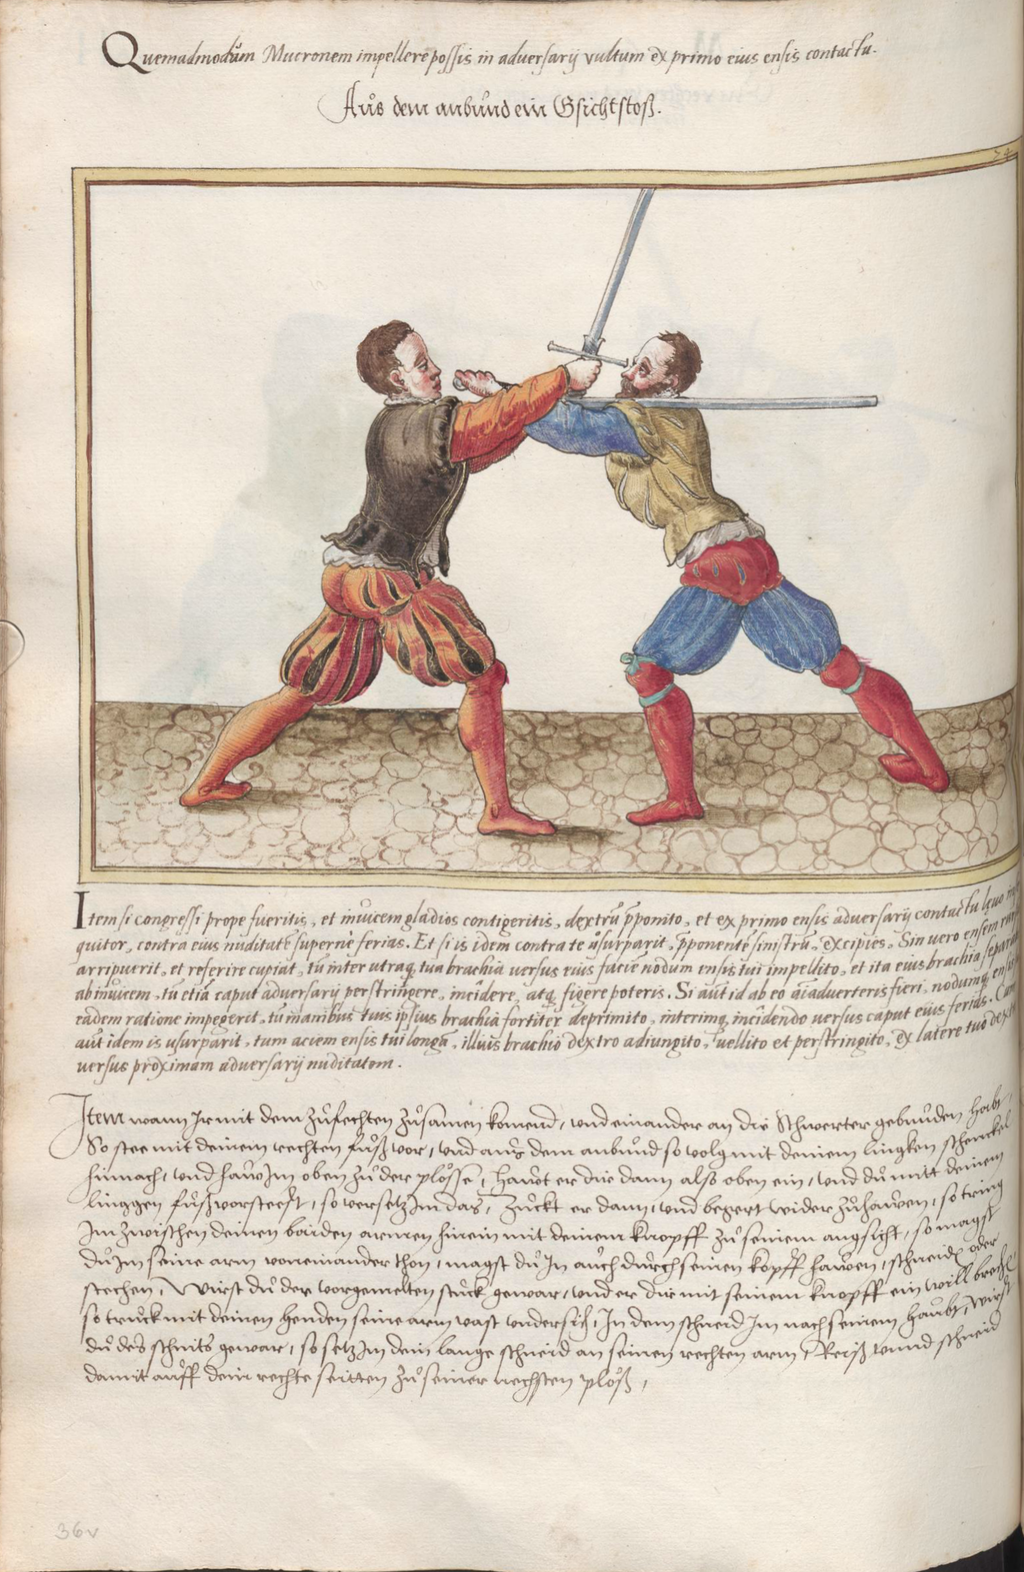 Quemadmodum Mucronem impellere possis in adversarij vultum ex primo eius ensis contactu.
Aůs dem anbund ein Gsichtstoß.
74
Item si congressi prope fueritis, et invicem gladios contigeritis, dextrū p̄ponito, et ex primo ensis adversarij contactu levo
quitor, contra eius nuditatē superne ferias. Et si is idem contra te usurparit, p̄ponente sinistrū, excipies. Sin vero ensem
arripuerit, et referire cupiat, tu inter utraq, tua brachia versus eius faciē nodum ensis tui impellito, et ita eius brachia
ab invicem, tu etiā caput adversarij perstringere, incidere, atq, figere poteris. Si aut id ab eo aīadverteris fieri, nodumq,
eadem ratione impegerit, tu manibus tuis ipsius brachia fortiter deprimito, interimq, incidendo versus caput eius ferias.
aūt idem is usurparit, tum aciem ensis tui longā, illius brachio dextro adiungito, vellito et perstringito, ex latere tuo
versus proximam adversarij nuditatem.
Item wann Ir mit dem zůfechten zůsamen komend, und einander an die Schwerter gebunden habt,
So stee mit deinem rechten fůß vor, und aůs dem anbund so volg mit deinem lingken schenckel
hinnach, und haw Im oben zů der plösse, Hawt er dir dann also oben ein, und du mitt deinem
linggen fůß vorsteest, so versetz Im das, Zuckt er dann, und begert wider zůhawen, so tring
Im zwischen deinen baiden armen hinein mit deinem knopff zů seinem angsicht, so magst
dů Im seine arm voneinander thon, magst dů In auch durch seinen kopff hawen, schneiden oder
stechen, Wirst dů der vorgemelten stuck gewar, und er dir mit seinem knopff ein will brechen,
so truck mit deinen henden seine arm vast undersich, In dem schneid Im nach seinem haubt, wirst
dů des schnits gewar, so setz Im dein lange schneid an seinen rechten arm, Reiß unnd schneid
damit auff dein rechte seitten zů seiner nechsten plöß,
36v